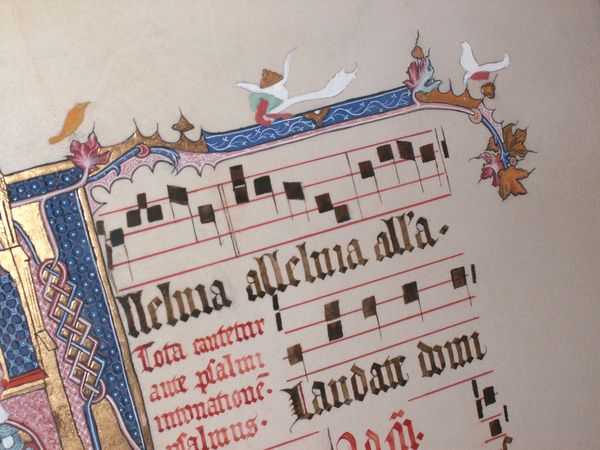 lleluia alleluia all'a.
Tota cantetur
ante psalmi
intonatione.
psalmus.
Laudate